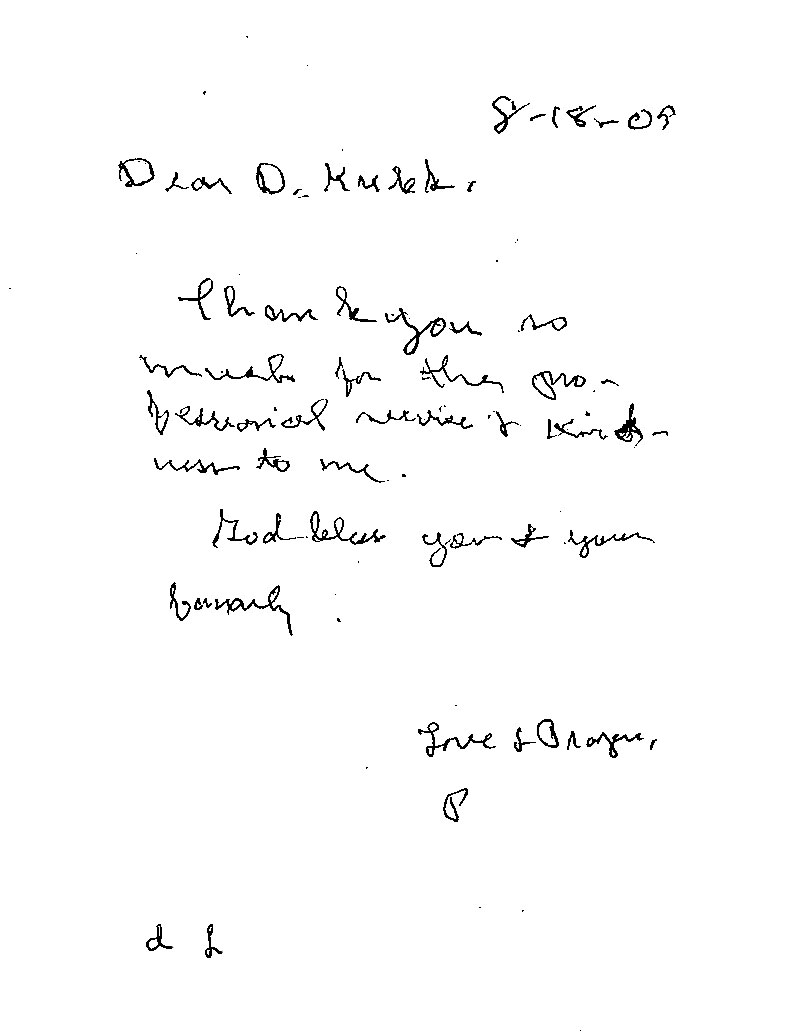 8-18-09
Dear D.
Thank you so
much for the pro-
fessional service & kind-
ness to me.
God bless you & your
family.
Love & Prayer,
P
d L